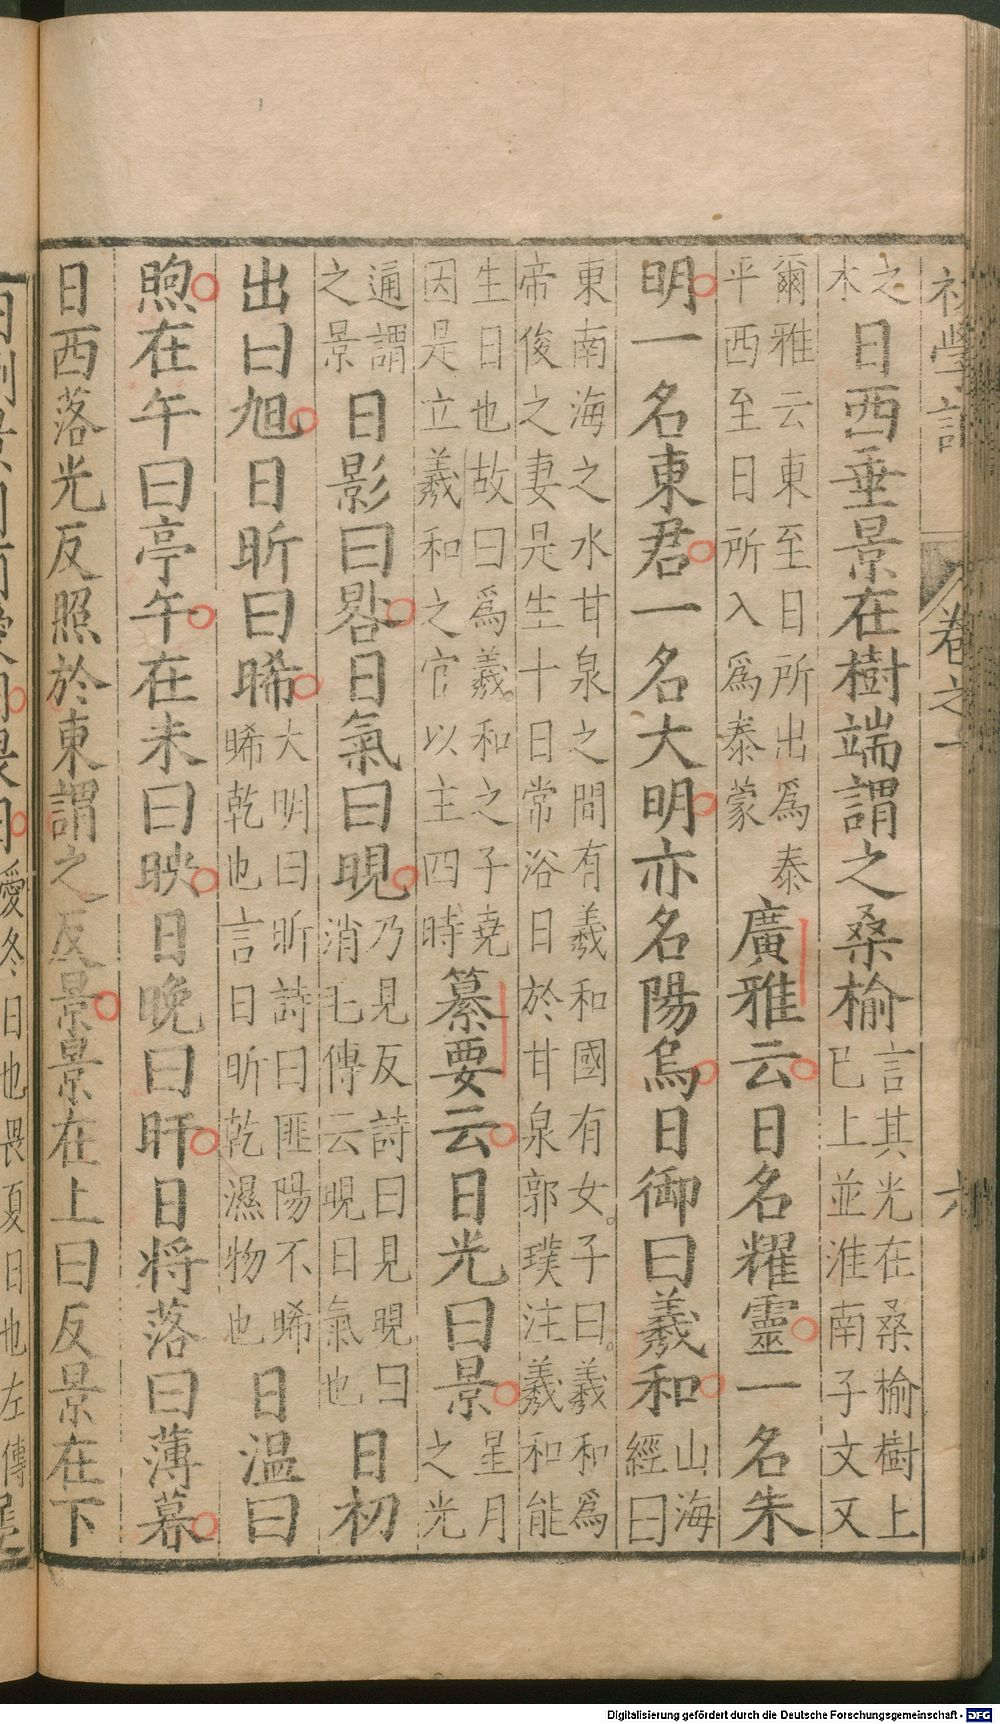 初學記 卷之一 六
之木日西垂景在樹端謂之桑榆言其光在桑榆樹上巳上並淮南子文又
爾雅云東至日所出爲泰平西至日所入爲泰蒙廣雅云日名耀靈一名朱
明一名東君一名大明亦名陽烏日御曰羲和山海經曰
東南海之水甘泉之間有羲和國有女子曰羲和爲帝俊之妻是生十日常浴日於甘泉郭璞注羲和能
生日也故曰爲羲和之子堯因是立羲和之官以主四時纂要云日光曰景星月之光
通謂之景日影曰晷日氣曰晛乃見反詩曰見晛曰消毛傳云晛日氣也日初
出曰旭日昕曰晞大明曰昕詩曰匪陽不晞晞乾也言日昕乾濕物也日溫曰
煦在午曰亭午在未曰映日晚曰旰日將落曰薄暮
日西落光反照於東謂之反景景在上曰反景在下
愛冬日也畏夏日也左傳
Digitalisierung gefördert durch die Deutsche Forschungsgemeinschaft - DFG